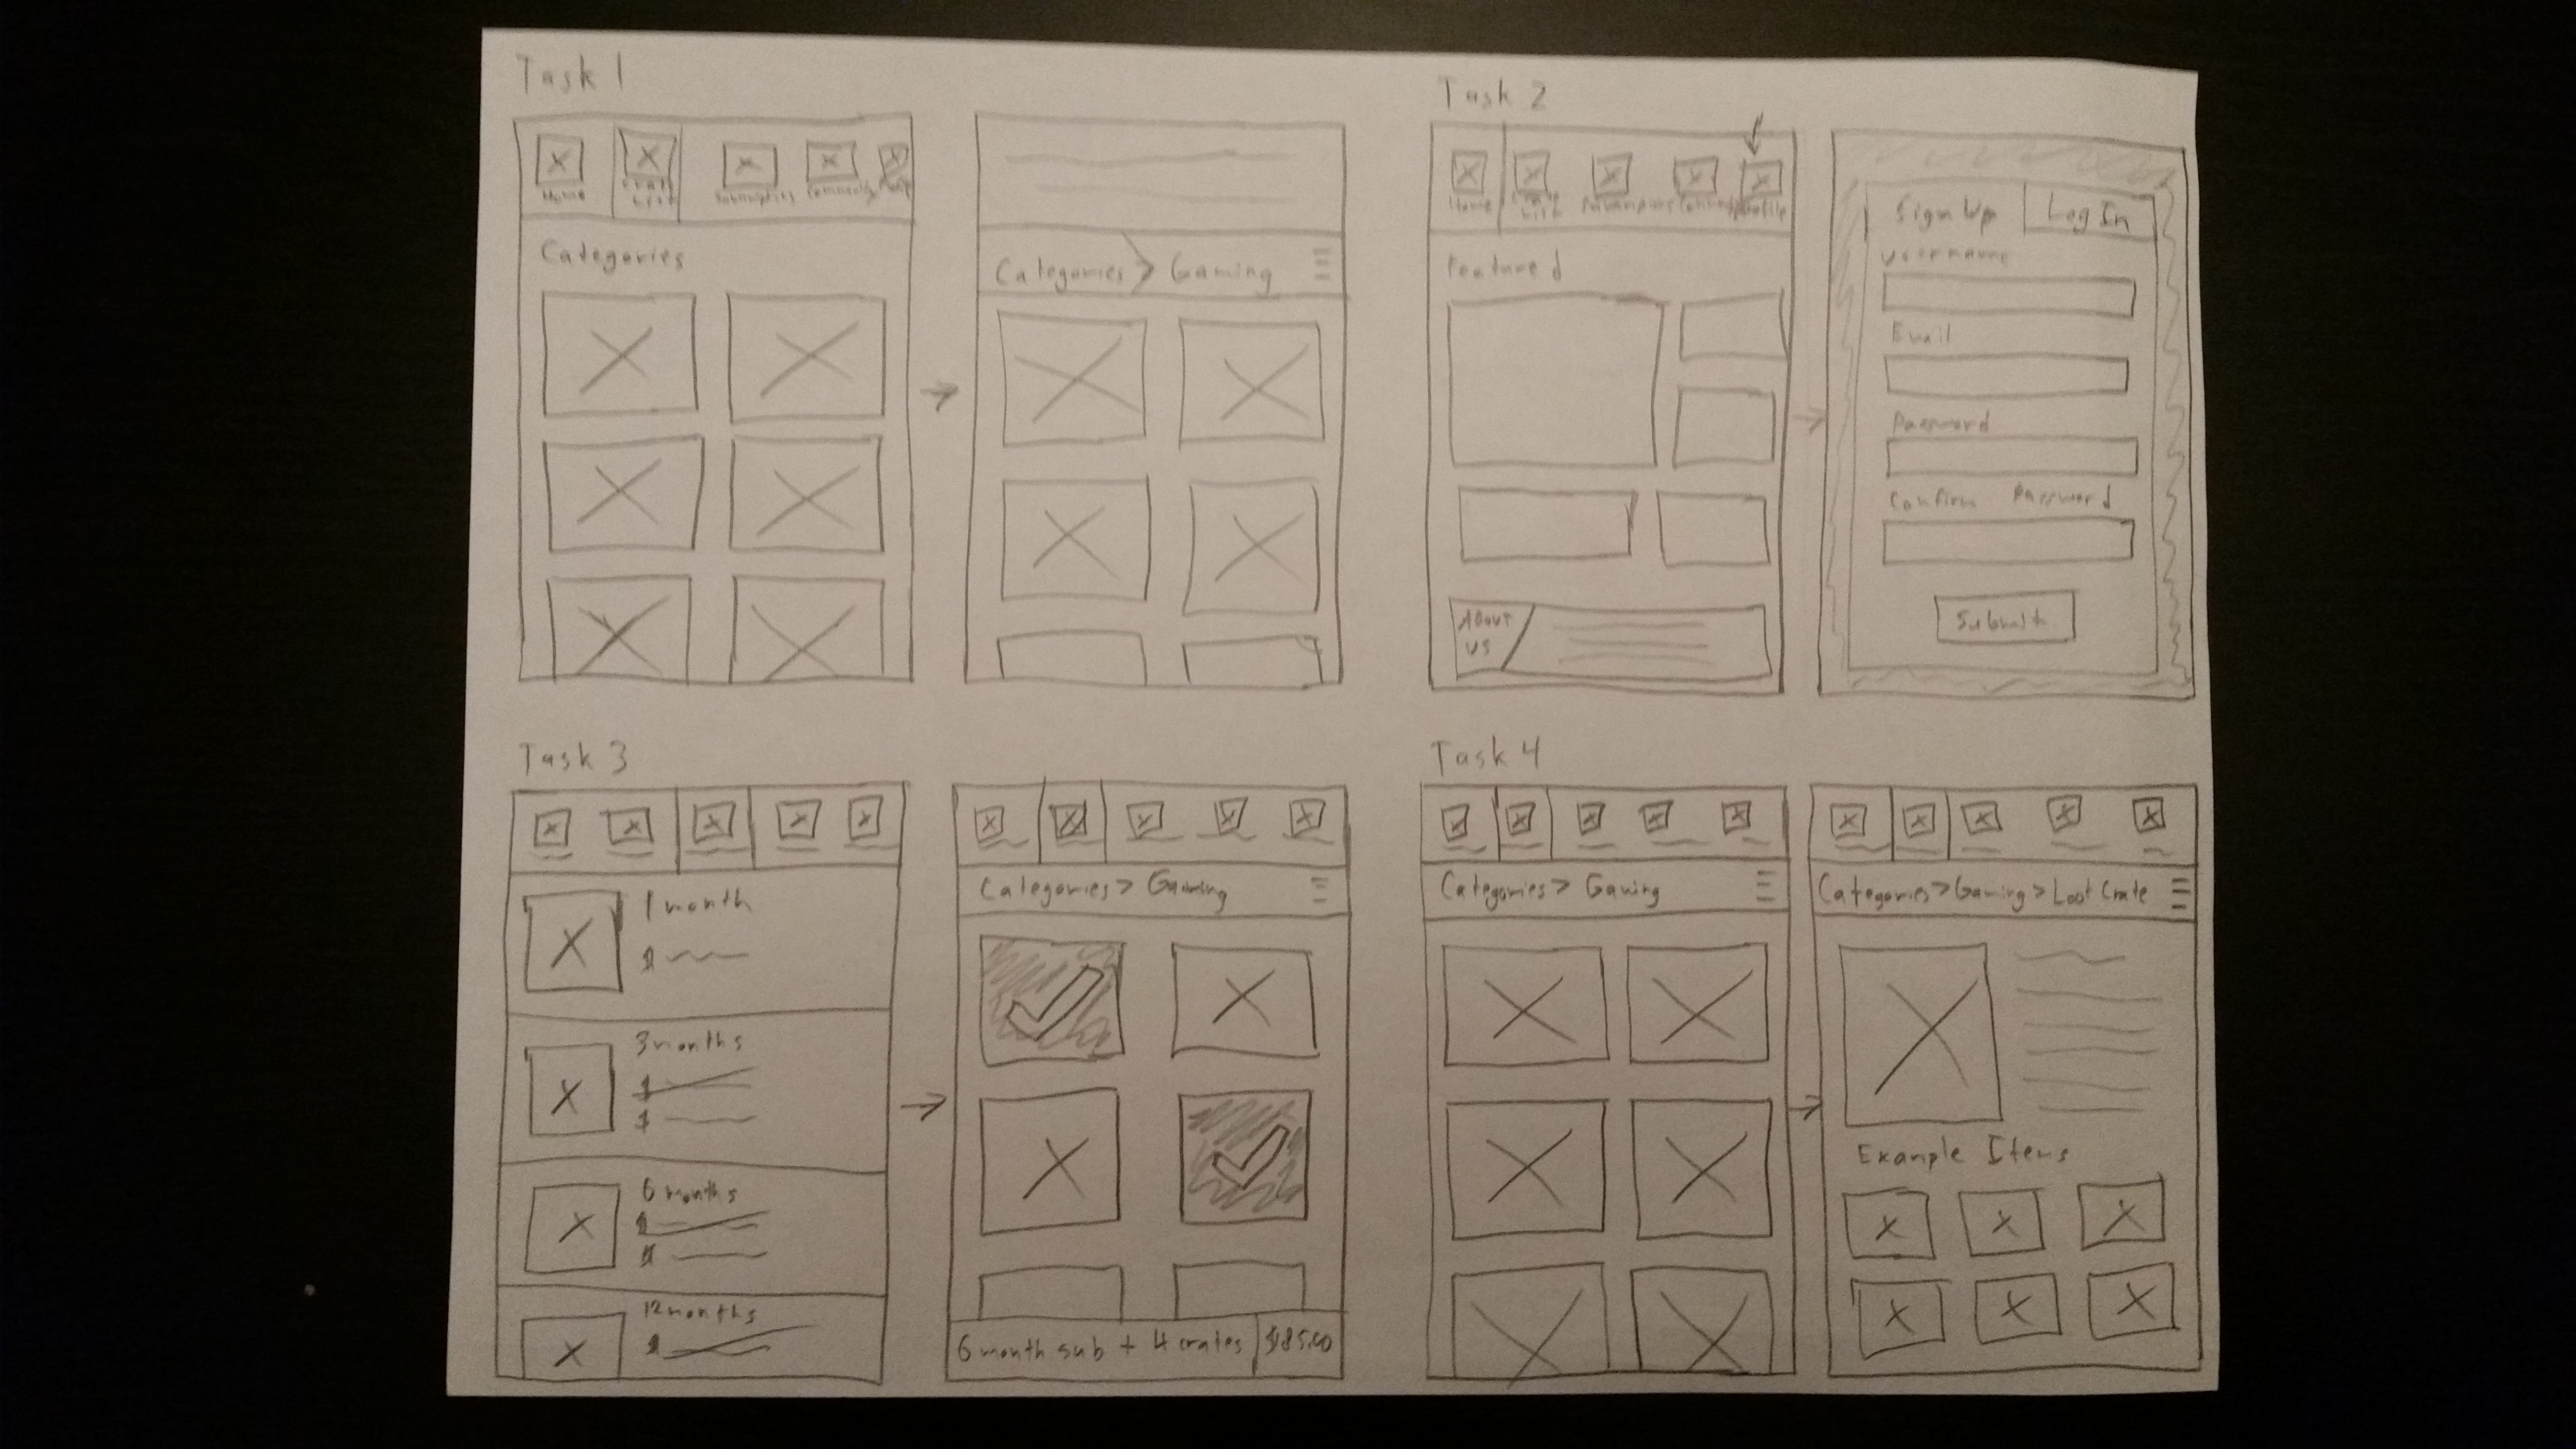 Task 1
Home
Crate List
Subscriptions
Community
Profile
Categories
Categories > Gaming
Task 2
Home
Crate List
Subscriptions
Profile
Featured
About
us
Sign Up
Log In
Username
Email
Password
Confirm Password
Submit
Task 3
1 month
$
3 months
$
$
6 months
$
$
12 months
$
Categories > Gaming
6 month sub + 4 crates
Task 4
Categories > Gaming
Categories > Gaming > Loot Crate
Example Items